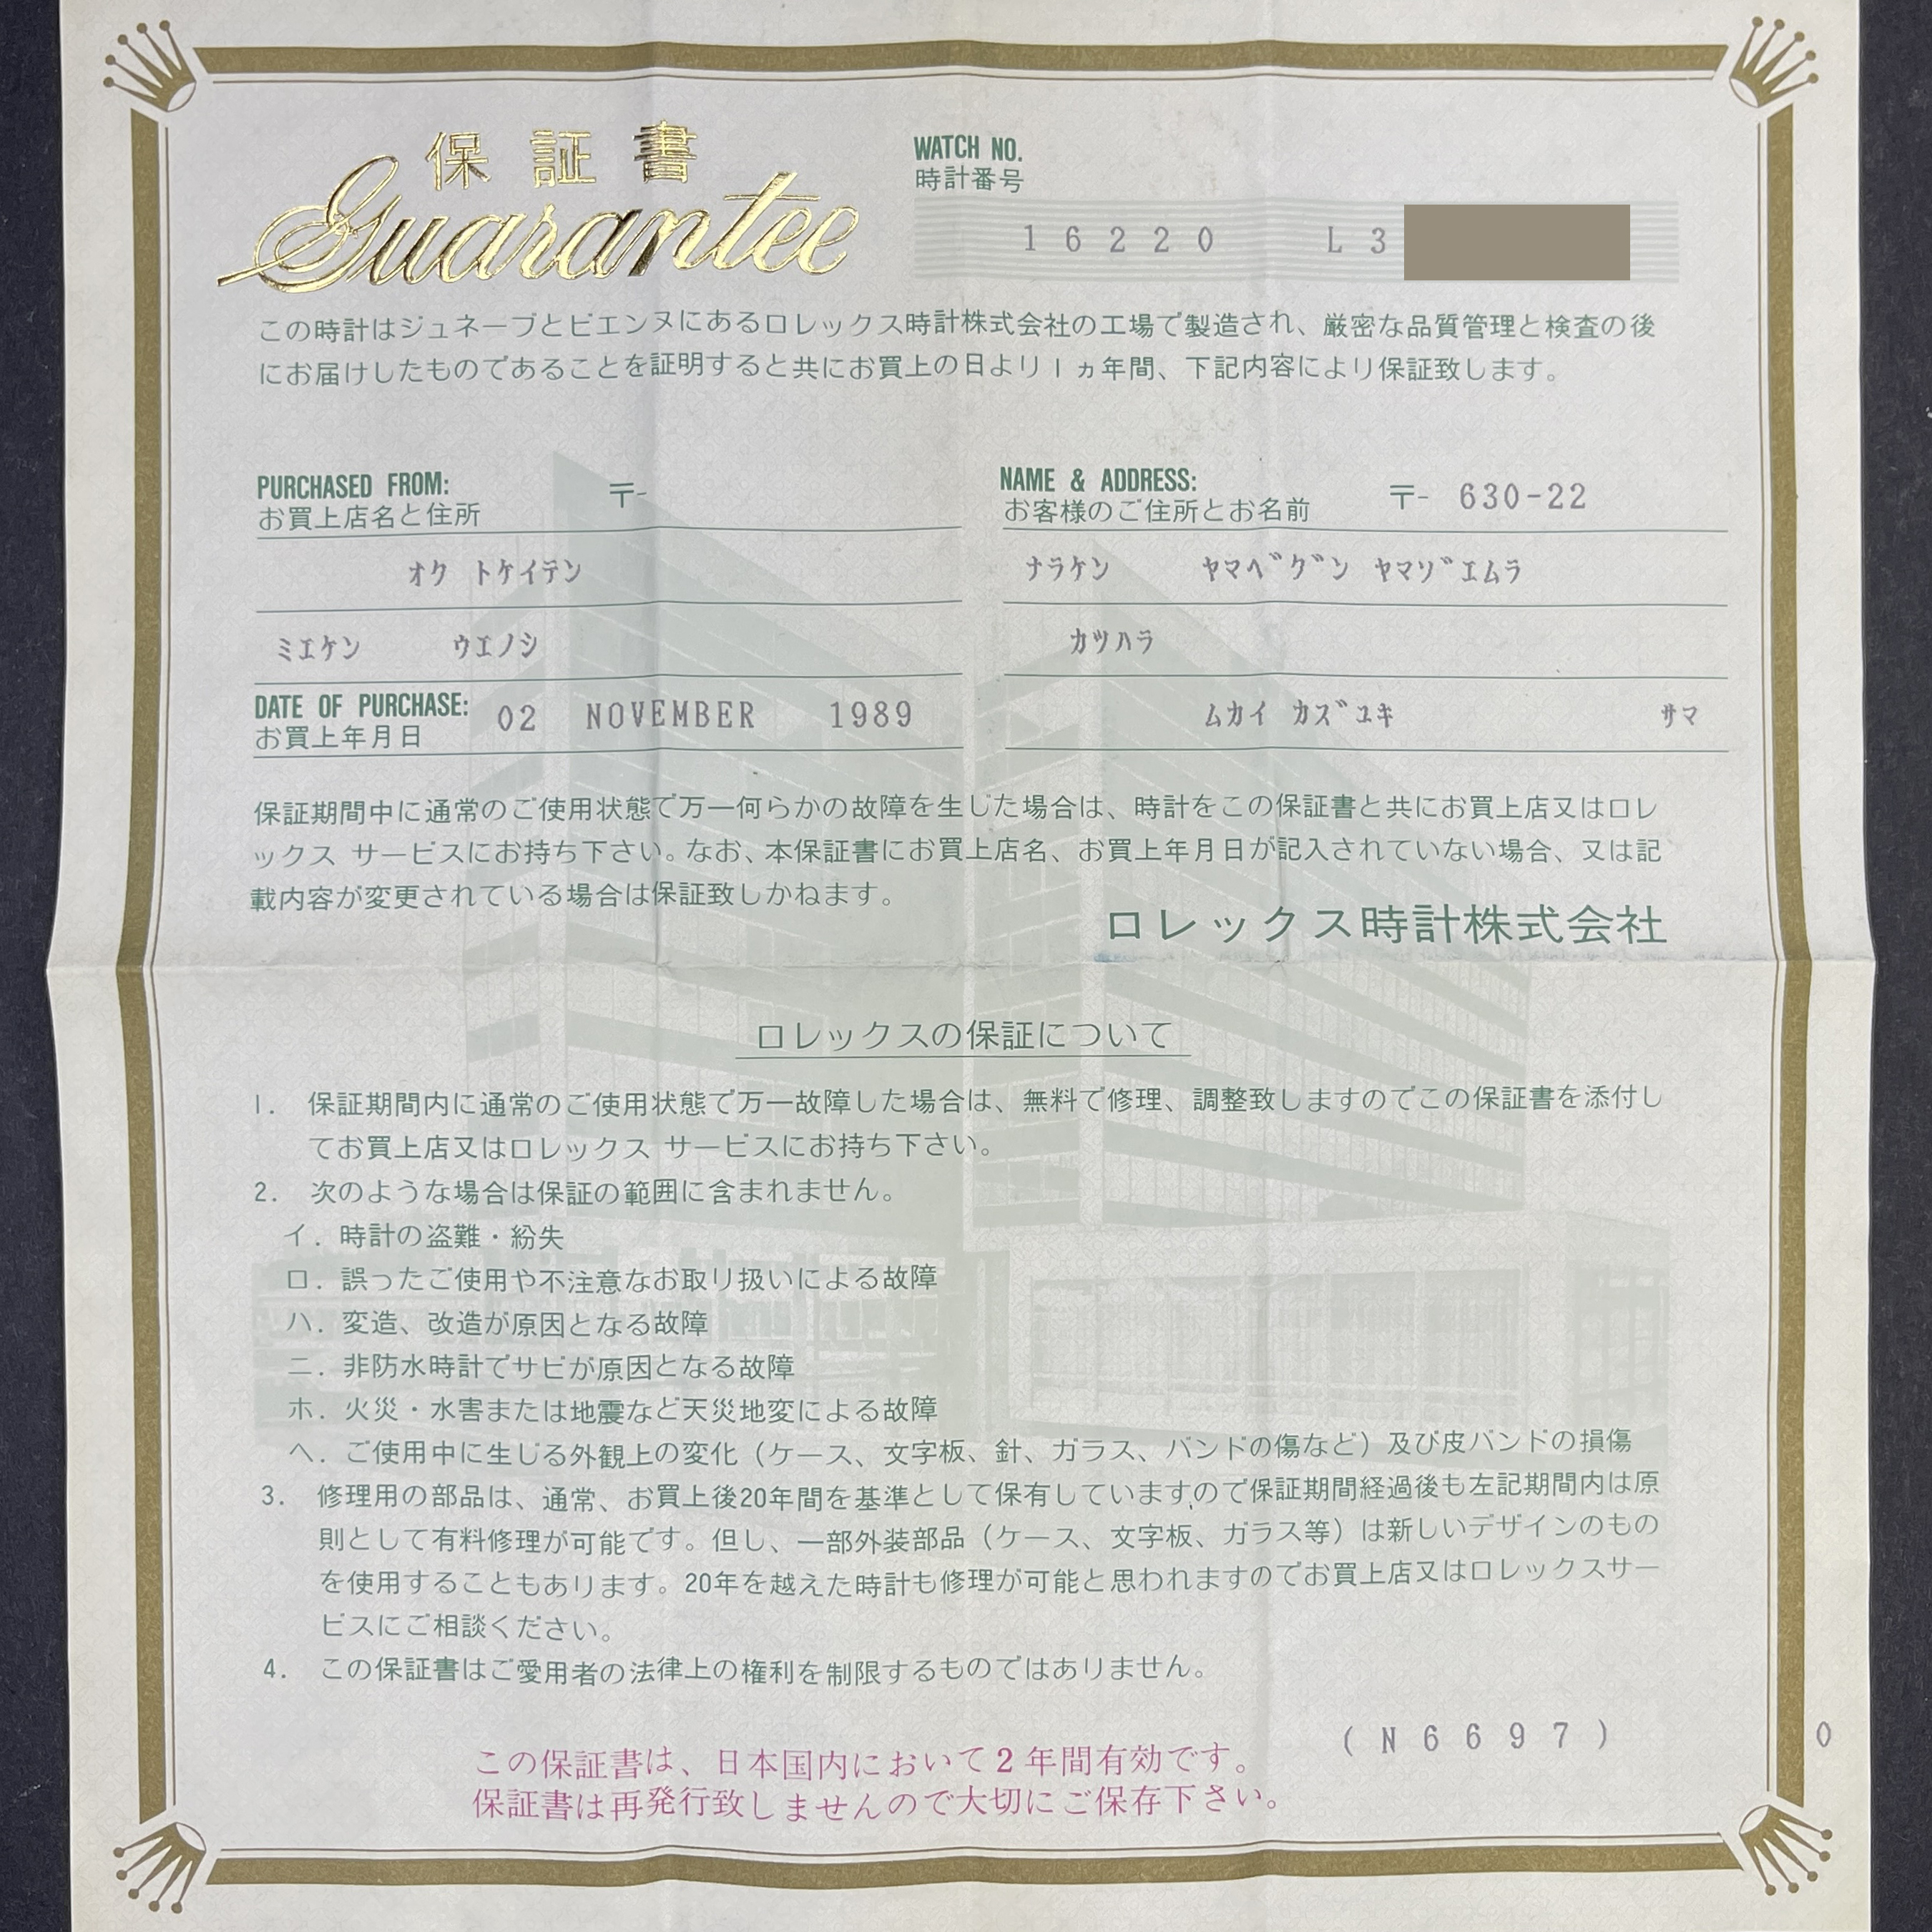 保証書
Guarantee
WATCH NO.
時計番号
16220 L3
この時計はジュネーブとビエンヌにあるロレックス時計株式会社の工場で製造され、厳密な品質管理と検査の後
にお届けしたものであることを証明すると共にお買上の日より1ヵ年間、下記内容により保証致します。
PURCHASED FROM:
お買上店名と住所 〒-
オク トケイテン
ミエケン ウエノシ
DATE OF PURCHASE:
お買上年月日 02 NOVEMBER 1989
NAME & ADDRESS:
お客様のご住所とお名前 〒- 630-22
ナラケン ヤマベグン ヤマゾエムラ
カツハラ
ムカイ カズユキ サマ
保証期間中に通常のご使用状態で万一何らかの故障を生じた場合は、時計をこの保証書と共にお買上店又はロレ
ックス サービスにお持ち下さい。なお、本保証書にお買上店名、お買上年月日が記入されていない場合、又は記
載内容が変更されている場合は保証致しかねます。
ロレックス時計株式会社
ロレックスの保証について
1. 保証期間内に通常のご使用状態で万一故障した場合は、無料で修理、調整致しますのでこの保証書を添付し
てお買上店又はロレックス サービスにお持ち下さい。
2. 次のような場合は保証の範囲に含まれません。
イ. 時計の盗難・紛失
ロ. 誤ったご使用や不注意なお取り扱いによる故障
ハ. 変造、改造が原因となる故障
ニ. 非防水時計でサビが原因となる故障
ホ. 火災・水害または地震など天災地変による故障
ヘ. ご使用中に生じる外観上の変化（ケース、文字板、針、ガラス、バンドの傷など）及び皮バンドの損傷
3. 修理用の部品は、通常、お買上後20年間を基準として保有していますので保証期間経過後も左記期間内は原
則として有料修理が可能です。但し、一部外装部品（ケース、文字板、ガラス等）は新しいデザインのもの
を使用することもあります。20年を越えた時計も修理が可能と思われますのでお買上店又はロレックスサー
ビスにご相談ください。
4. この保証書はご愛用者の法律上の権利を制限するものではありません。
(N6697) 0
この保証書は、日本国内において2年間有効です。
保証書は再発行致しませんので大切にご保存下さい。